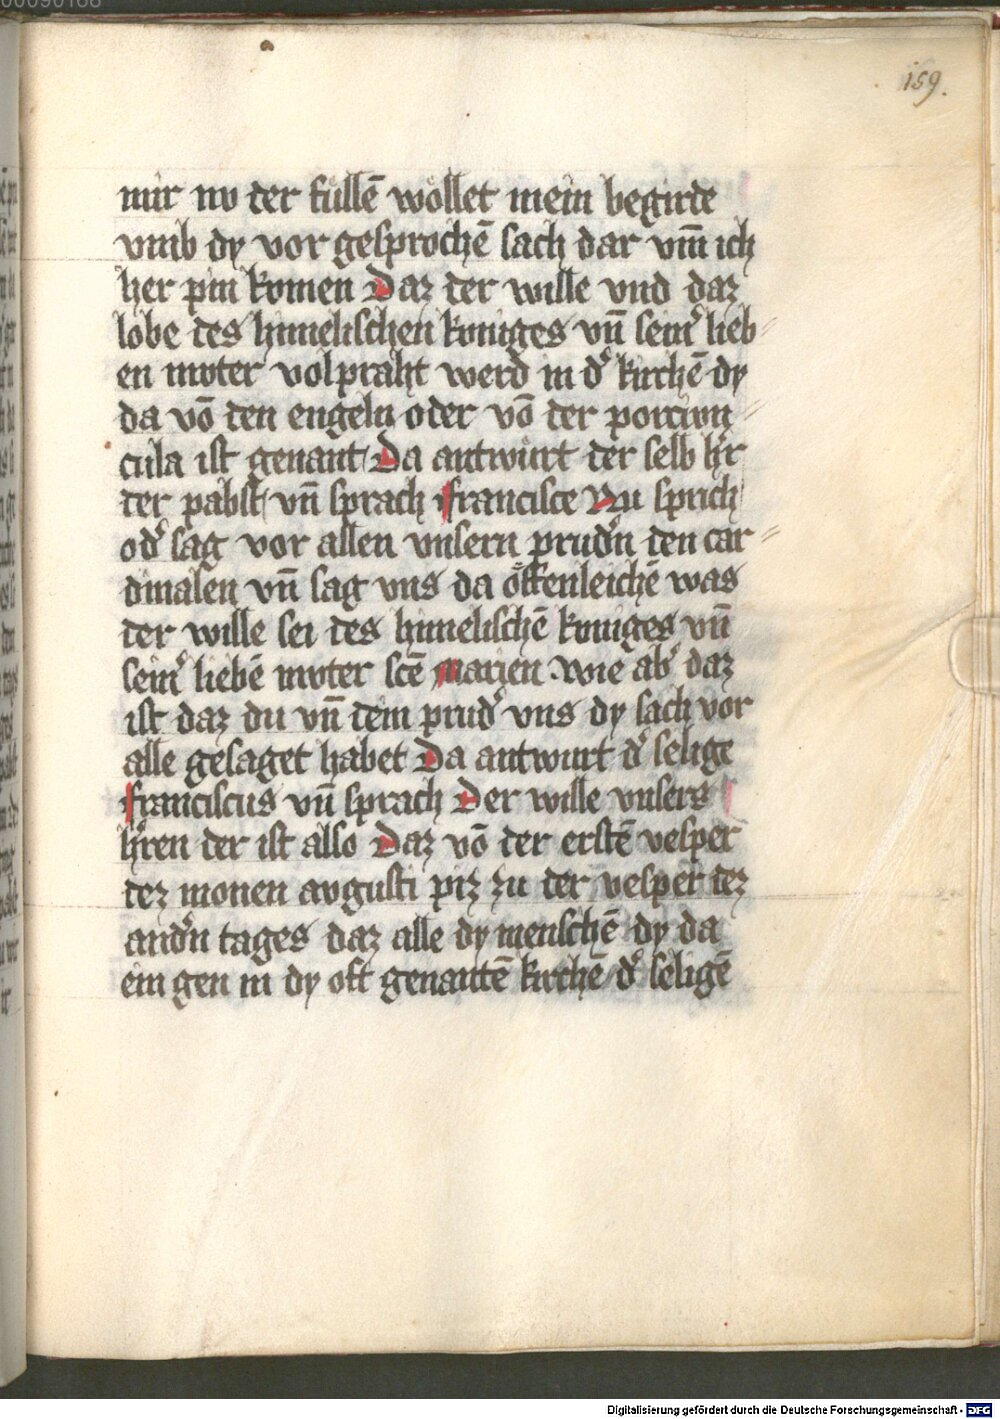 159.
mir nv der füllē wöllet mein begirde
vmb dy vor gesprochē sach dar vm̄ ich
her pin komen Daz der wille vnd daz
lobe des himelischen koniges vn̄ seinˀ lieb⸗
en mvter volpraht werd in dˀ kirchē dy
da vō den engeln oder vō der porciun⸗
cula ist genant Da antwurt der selb hˀr
der pabst vn̄ sprach francisce Nu sprich
odˀ sag vor allen vnsern prudˀn den car⸗
dinalen vn̄ sag vns da öffenleichē was
der wille sei des himelischē koniges vn̄
seinˀ liebē mvter scē Marien wie abˀ daz
ist daz du vn̄ dein prudˀ vns dy sach vor
alle gesaget habet Da antwurt dˀ selige
franciscus vn̄ sprach Der wille vnsers
hˀren der ist also Daz vō der erstē vesper
dez monen avgusti piz zu der vesper dez
andˀn tages daz alle dy menschē dy da
ein gen in dy oft genantē kirchē dˀ seligē
Digitalisierung gefördert durch die Deutsche Forschungsgemeinschaft - DFG